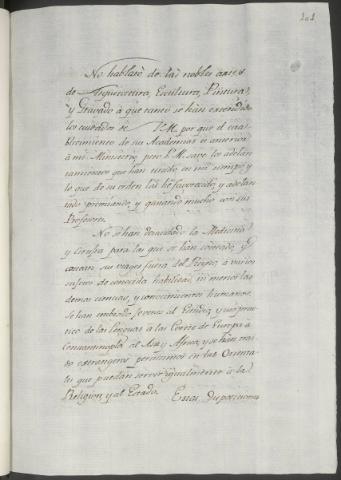 No hablaré de las nobles artes
de Arquitectura, Escultura, Pintura,
y Gravado à que tanto se han extendido
los cuidados de V.M. por que el esta-
blecimiento de sus Academias es anterior
à mi Ministerio, pero V.M. save los adelan-
tamientos que han tenido en mi tiempo, y
lo que de su orden las he favorecido, y adelan-
tado premiando, y ganando mucho con sus
Profesores.
No se han descuidado la Medicina
y Cirujia para las que se han costeado, y
costean sus viages fuera del Reyno, à varios
sujetos de conocida habilidad, ni menos las
demas ciencias, y conocimientos humanos.
Se han embiado Jovenes al Estudio, y uso prac-
tico de las Lenguas à las Cortes de Europa à
Constantinopla al Asia, y Africa, y se han trai-
do estrangeros peritisimos en las Orienta-
les que puedan servir igualmente à la
Religion, y al Estado. Estas disposiciones